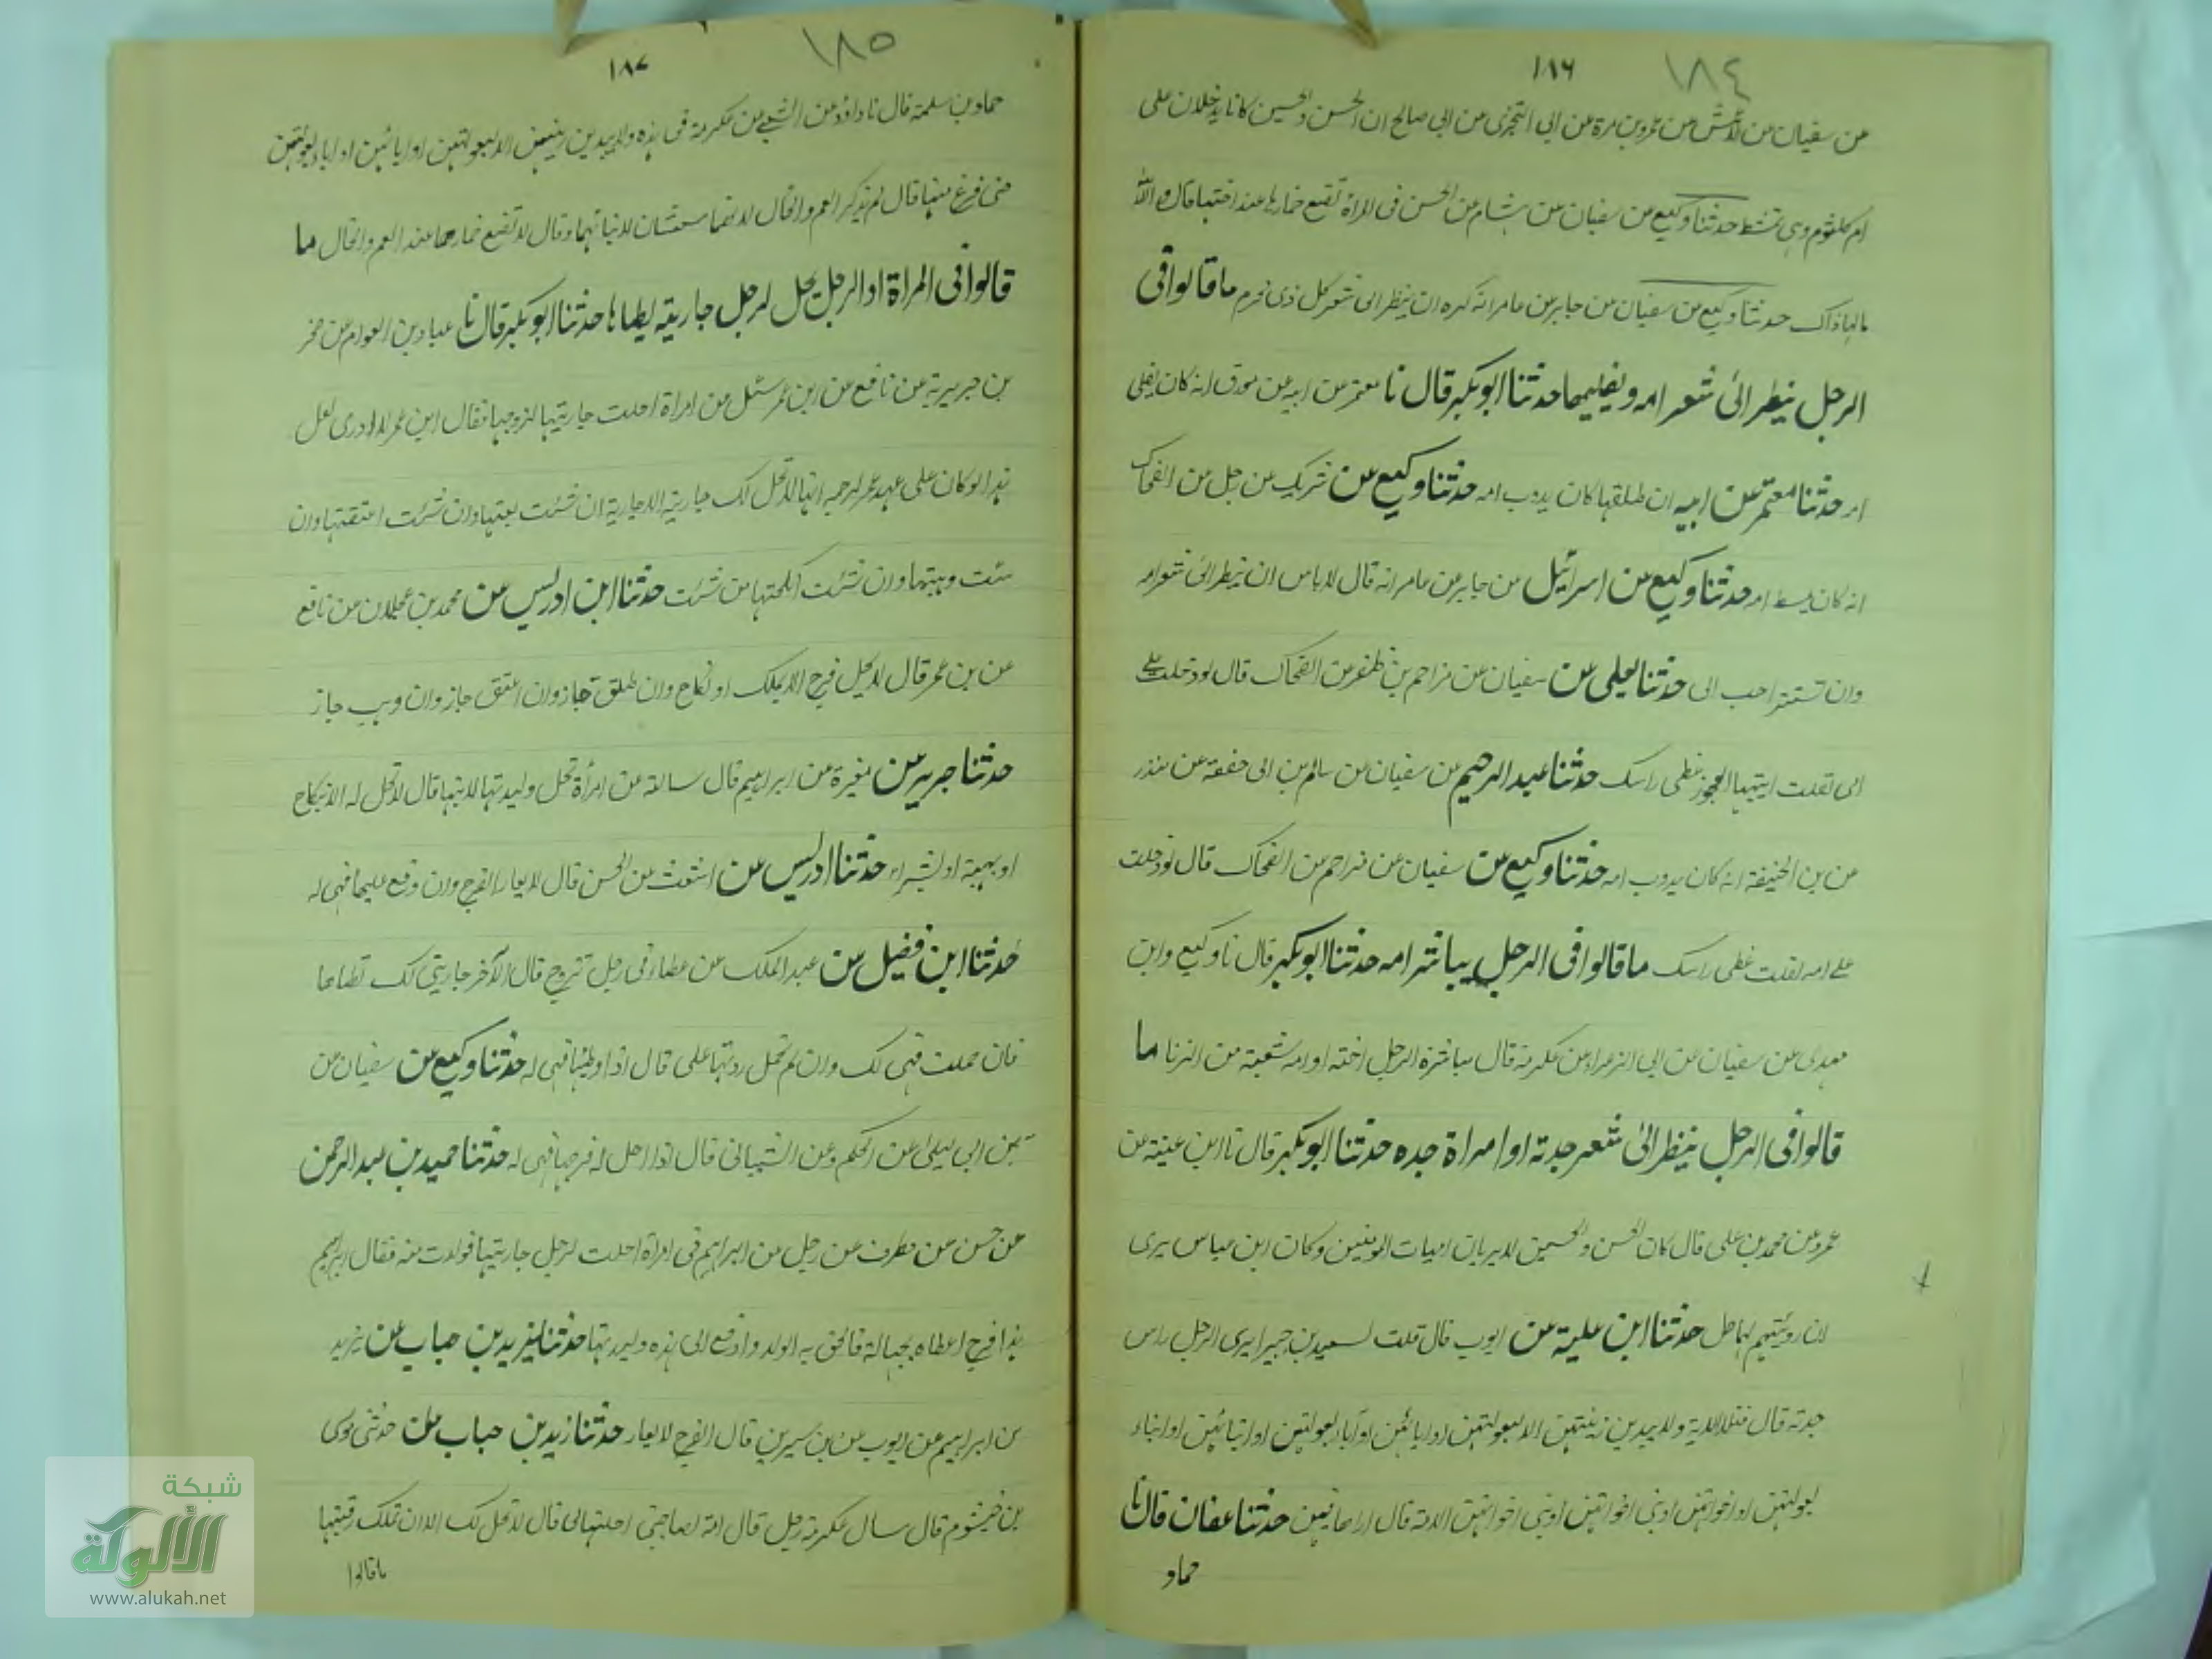 ١٨٤
١٨٦
عن سفيان عن الاعمش عن عمرو بن مرة عن ابي البختري عن ابي صالح ان الحسن والحسين كانا يدخلان على
ام كلثوم وهى تمشط حدثنا وكيع عن سفيان عن هشام عن الحسن فى المراة تضع خمارها عند اخيها قال والله
مالها ذاك حدثنا وكيع عن سفيان عن جابر عن عامر انه كره ان ينظر الى شعر كل ذى محرم ما قالوا فى
الرجل ينظر الى شعر امه ويفليها حدثنا ابو بكر قال نا معتمر عن ابيه عن مورق انه كان يفلى
امه حدثنا معتمر عن ابيه ان طلقها كان يدوب امه حدثنا وكيع عن شريك عن رجل عن الضحاك
انه كان يمشط امه حدثنا وكيع عن اسرائيل عن جابر عن عامر انه قال لا باس ان ينظر الى شعر امه
وان تستتر احب الى حدثنا يعلى عن سفيان عن مزاحم بن ظفر عن الضحاك قال لو دخلت على
امى لقلت ايتها العجوز غطى راسك حدثنا عبد الرحيم عن سفيان عن سالم بن ابى حفصة عن منذر
عن بن الحنيفة انه كان يدوب امه حدثنا وكيع عن سفيان عن مزاحم عن الضحاك قال لو دخلت
على امه لقلت غطى راسك ما قالوا فى الرجل يباشر امه حدثنا ابو بكر قال نا وكيع وابن
مهدى عن سفيان عن ابي الزعراء عن عكرمة قال مباشرة الرجل اخته او امه شعبة من الزنا ما
قالوا فى الرجل ينظر الى شعر جدته او امراة جده حدثنا ابو بكر قال نا ابن عينة عن
عمرو عن محمد بن على قال كان الحسن والحسين لا يريان امهات المومنين وكان ابن عباس يرى
ان رويتهم لهما حل حدثنا ابن علية عن ايوب قال قلت لسعيد بن جبير ايرى الرجل راس
جدته قال فتلا الاية ولا يبدين زينتهن الا لبعولتهن او ابائهن او آباء بعولتهن او ابنائهن او ابناء
بعولتهن او اخوانهن او بنى اخوانهن او بنى اخواتهن الاية قال اراها فيهن حدثنا عفان قال نا
حماد
١٨٥
١٨٧
حماد بن سلمة قال نا داؤد عن الشعبى عن عكرمة فى هذه ولا يبدين زينتهن الا لبعولتهن او ابائهن او اباء بعولتهن
حتى فرغ منها قال لم يذكر العم والخال لانهما ينعتان لابنائهما وقال لا تضع خمارها عند العم والخال ما
قالوا فى المراة او الرجل يحل لرجل جاريته يطاها حدثنا ابو بكر قال نا عباد بن العوام عن
بن جويرية عن نافع عن ابن عمر سئل عن امراة احلت جاريتها لزوجها فقال ابن عمر لا ادرى لعل
هذا لو كان على عهد عمر لرجمه انها لا تحل لك جارية الا جارية ان شئت بعتها وان شئت اعتقتها وان
شئت وهبتها وان شئت انكحتها من شئت حدثنا ابن ادريس عن محمد بن عجلان عن نافع
عن بن عمر قال لا يحل فرج الا بملك او نكاح وان طلق جاز وان اعتق جاز وان وهب جاز
حدثنا جرير عن مغيرة عن ابراهيم قال سالته عن امرأة تحل وليدتها لابنها قال لا تحل له الا بنكاح
او بهبة او بشراء حدثنا ادريس عن اشعث عن الحسن قال لا يعار الفرج وان وقع عليها فهى له
حدثنا ابن فضيل عن عبد الملك عن عطاء فى رجل تزوج قال لآخر جاريتى لك تطاها
فان حملت فهى لك وان لم تحمل ردتها على قال اذا وطيها فهى له حدثنا وكيع عن سفيان عن
بن ابى ليلى عن الحكم وعن الشيبانى قال اذا احل له فرجها فهى له حدثنا حميد بن عبد الرحمن
عن حسن عن مطرف عن رجل عن ابراهيم فى امرأة احلت لرجل جاريتها فولدت منه فقال ابراهيم
هذا فرج اعطاه بجهالة فالحق به الولد وادفع الى هذه وليدتها حدثنا يزيد بن حباب عن يزيد
بن ابراهيم عن ايوب عن بن سيرين قال الفرج لا يعار حدثنا زيد بن حباب عن حدثنى موسى
بن خيثوم قال سال عكرمة رجل قال امة لصاحبتى احلتها لى قال لا تحل لك الا ان تملك رقبتها
ما قالوا
شبكة
الألوكة
www.alukah.net